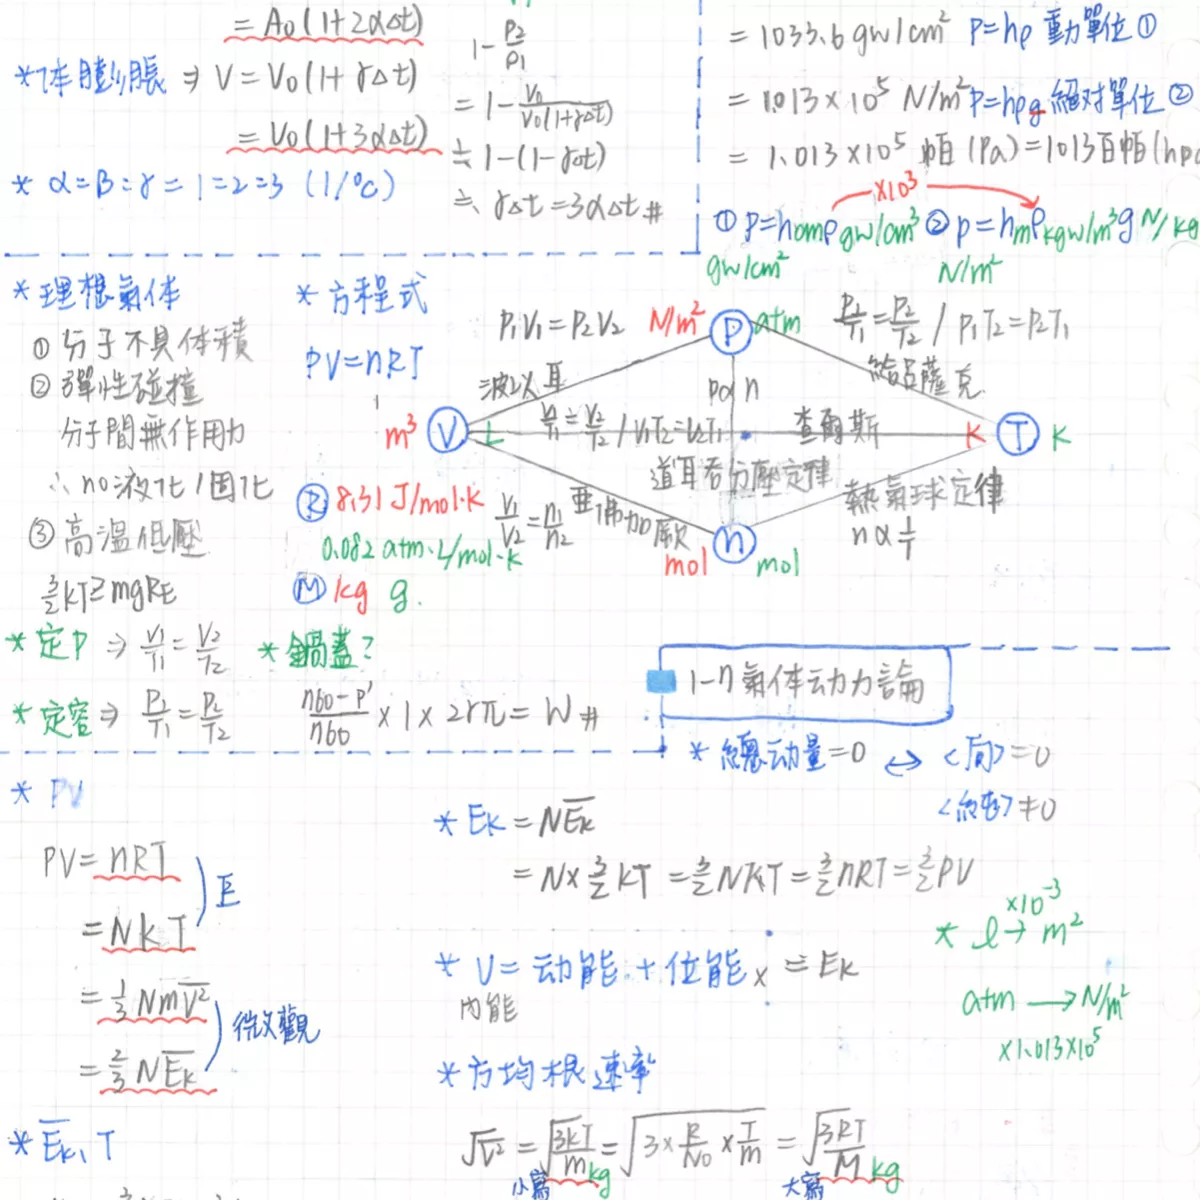 = A₀(1+2αΔt)
*体膨脹 ⇒ V = V₀(1+γΔt)
= V₀(1+3αΔt)
* α=β=γ = 1=2=3 (1/°C)
1-P₂/P₁
= 1-V₀/V₀(1+γΔt)
≒ 1-(1-γΔt)
≒ γΔt = 3αΔt #
= 1033.6 gw/cm² P=hρ 重力單位①
= 1.013×10⁵ N/m² P=hρg 絕对單位②
= 1.013×10⁵ 帕(Pa)=1013百帕(hpa
×10³
① P=hcmρgw/cm³ ② P=hmρkgw/m³g N/kg
gw/cm² N/m²
* 理想氣体
① 分子不具体積
② 彈性碰撞
分子間無作用力
∴ no液化/固化
③ 高溫低壓
3/2kT≥mgRE
* 方程式
PV=nRT
P₁V₁=P₂V₂
N/m² P atm
P₁/T₁=P₂/T₂ / P₁T₂=P₂T₁
波以耳
P∝n
給呂薩克
m³ V L
V₁/T₁=V₂/T₂ / V₁T₂=V₂T₁
查爾斯
K T K
道耳吞分壓定律
亞佛加厥
V₁/V₂=n₁/n₂
熱氣球定律
n∝1/T
mol n mol
R 8.31 J/mol·K
0.082 atm·L/mol·K
M kg g.
* 定P ⇒ V₁/T₁=V₂/T₂
* 定容 ⇒ P₁/T₁=P₂/T₂
* 鍋蓋?
× 1 × 2rπ = W #
1-n 氣体动力論
* 總动量=0 ↔ <向>=0
≠0
* PV
PV = nRT
= NkT
巨
= 1/3 Nmv²
= 2/3 NEk
微觀
* Ek = NEk
= N×3/2 kT = 3/2 NkT = 3/2 nRT = 3/2 PV
* l → m²
×10⁻³
* U = 动能 + 位能 × = Ek
內能
atm → N/m²
×1.013×10⁵
* 方均根速率
√v² = √3kT/m = √3×R/N₀×T/m = √3RT/M
kg
小寫
kg
大寫
* Ek, T